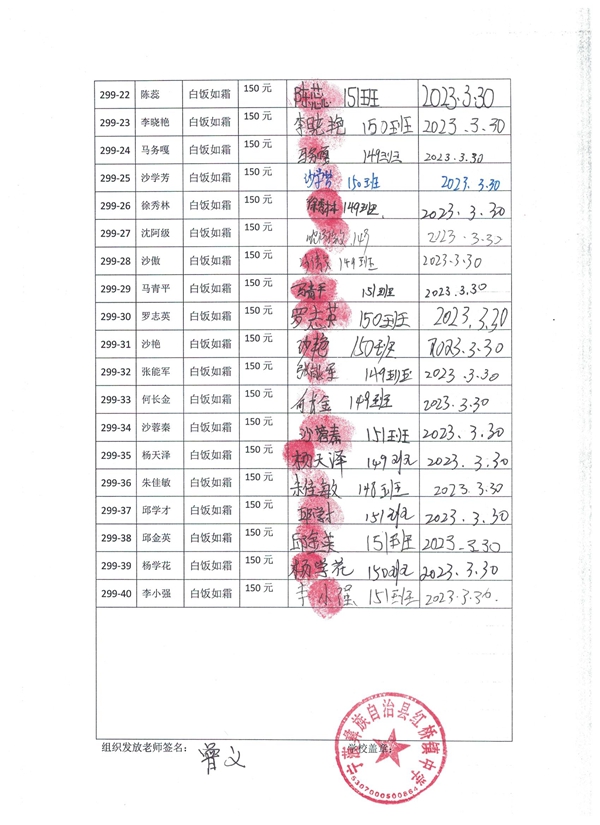 299-22 陈蕊 白饭如霜 150 元 陈蕊 151班 2023.3.30
299-23 李晓艳 白饭如霜 150 元 李晓艳 150班 2023.3.30
299-24 马务嘎 白饭如霜 150 元 马务嘎 149班 2023.3.30
299-25 沙学芳 白饭如霜 150 元 沙学芳 150班 2023.3.30
299-26 徐秀林 白饭如霜 150 元 徐秀林 149班 2023.3.30
299-27 沈阿级 白饭如霜 150 元 沈阿级 149 2023.3.30
299-28 沙傲 白饭如霜 150 元 149班 2023.3.30
299-29 马青平 白饭如霜 150 元 马青平 151班 2023.3.30
299-30 罗志英 白饭如霜 150 元 罗志英 150班 2023.3.30
299-31 沙艳 白饭如霜 150 元 沙艳 150班 2023.3.30
299-32 张能军 白饭如霜 150 元 张能军 149班 2023.3.30
299-33 何长金 白饭如霜 150 元 何长金 149班 2023.3.30
299-34 沙蓉秦 白饭如霜 150 元 沙蓉秦 151班 2023.3.30
299-35 杨天泽 白饭如霜 150 元 杨天泽 149班 2023.3.30
299-36 朱佳敏 白饭如霜 150 元 朱佳敏 148班 2023.3.30
299-37 邱学才 白饭如霜 150 元 邱学才 151班 2023.3.30
299-38 邱金英 白饭如霜 150 元 邱金英 151班 2023.3.30
299-39 杨学花 白饭如霜 150 元 杨学花 150班 2023.3.30
299-40 李小强 白饭如霜 150 元 李小强 151班 2023.3.30
组织发放老师签名： 曾义 学校盖章：
宁蒗彝族自治县红桥镇中学
5307000500864